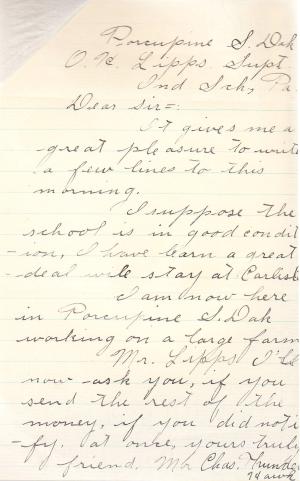 Porcupine S. Dak
O. H. Lipps Supt
Ind Sch, Pa.
Dear sir=:
It gives me a
great pleasure to write
a few lines to this
morning.
I suppose the
school is in good condit
-ion, I have learn a great
-deal wile stay at Carlisle
I am now here
in Porcupine S. Dak
working on a large farm
Mr. Lipps I'll
now ask you, if you
send the rest of the
money, if you did noti
-fy. at once, yours truly
friend. Mr Chas. Thunder
Hawk